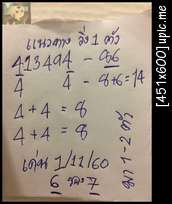 แนวทาง วิ่ง 1 ตัว
413494 - 86
4 4 - 8+6=14
4 + 4 = 8
4 + 4 = 8
เด่น 1/11/60
6 และ 7
มา 1-2 ตัว
[451x600] upic.me